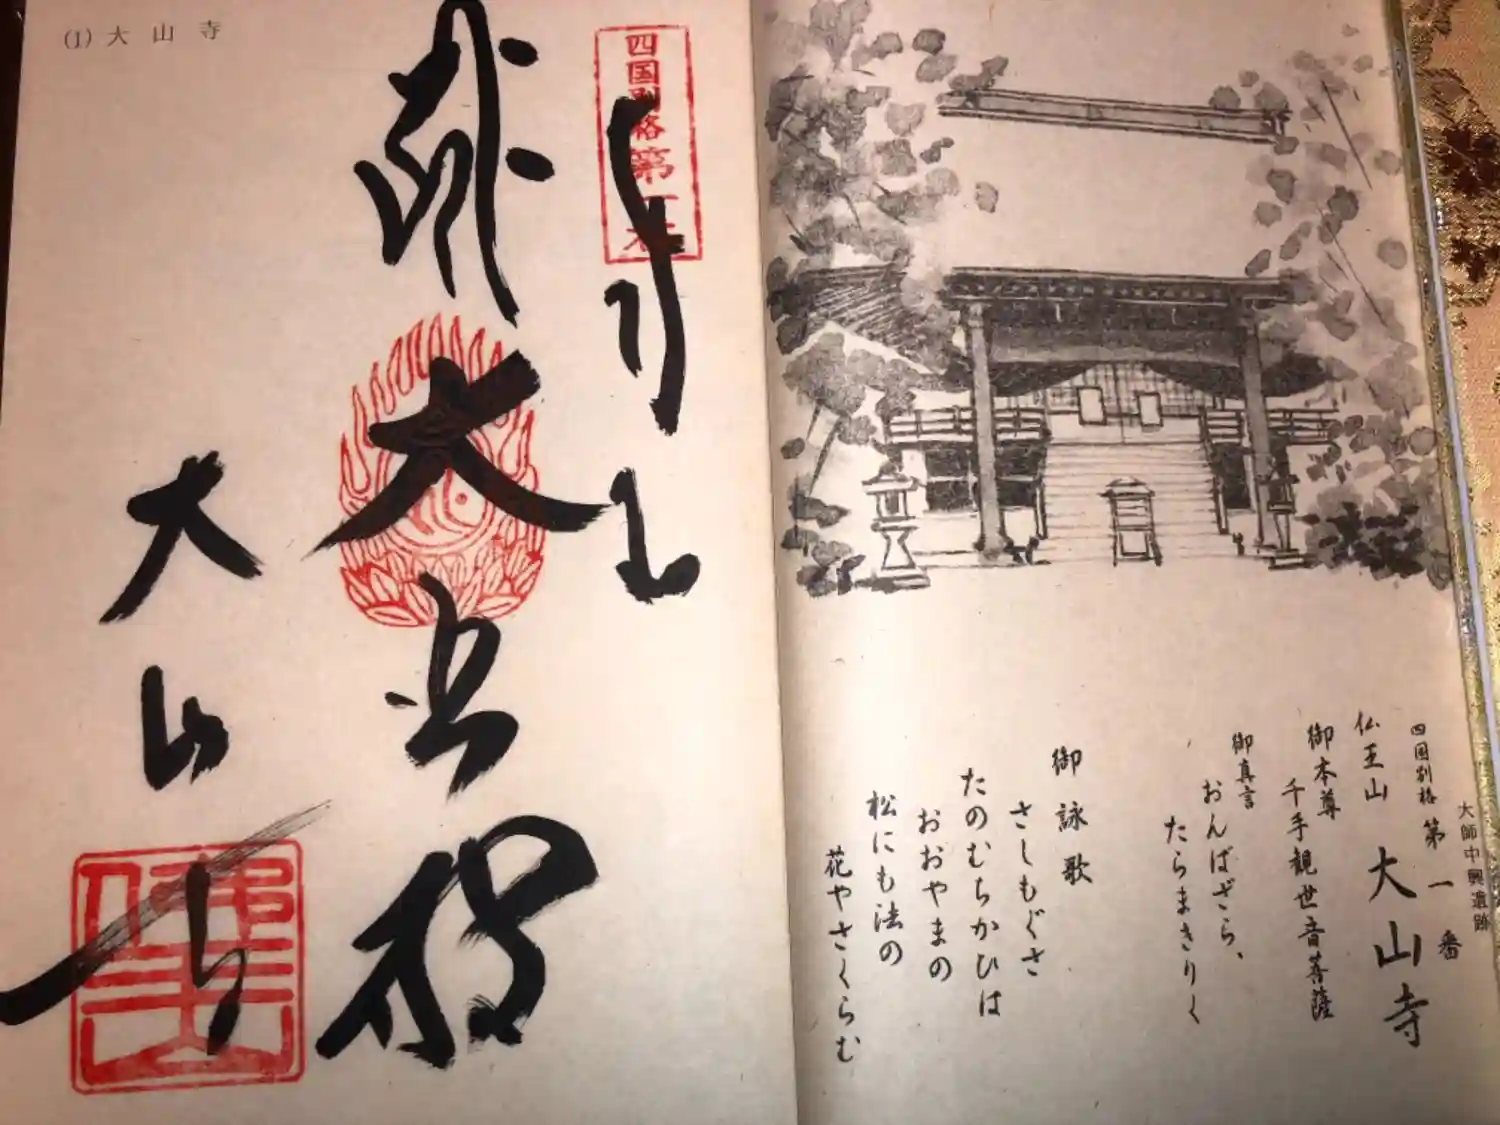 大師中興遺跡
四国別格 第一番
仏王山 大山寺
御本尊
千手観世音菩薩
御真言
おんばざら、
たらまきりく
御詠歌
さしもぐさ
たのむちかひは
おおやまの
松にも法の
花やさくらむ
(1) 大山寺
四国別格第一
大悲殿
大山寺